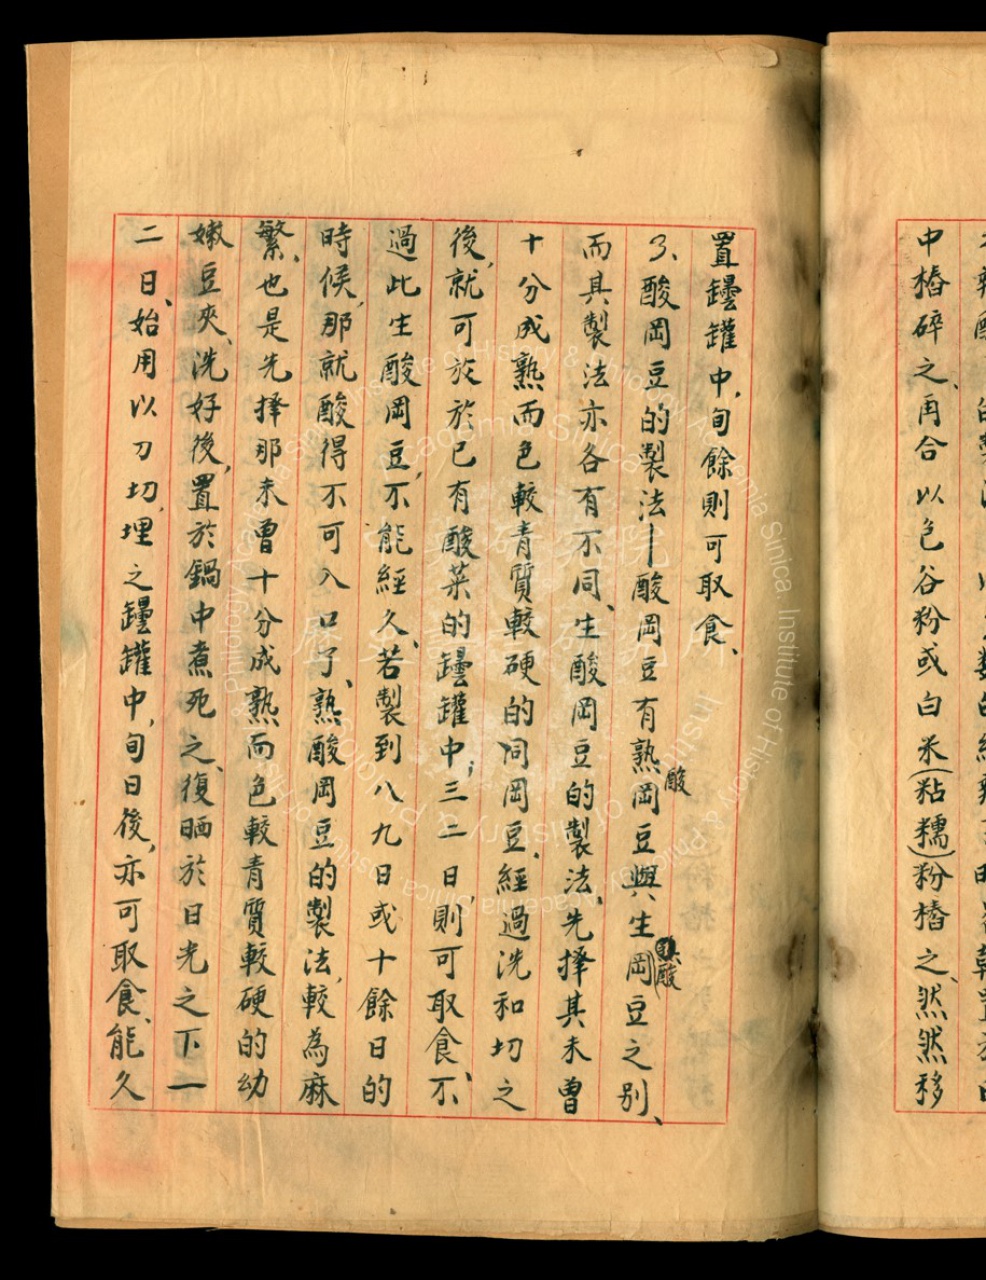 中樁碎之、再合以色谷粉或白米(粘糯)粉樁之、然然移
置罎罐中，旬餘則可取食、
3、酸岡豆的製法—酸岡豆有熟酸岡豆與生酸岡豆之別、
而其製法亦各有不同、生酸岡豆的製法，先擇其未曾
十分成熟而色較青質較硬的冋岡豆、經過洗和切之
後，就可放於已有酸菜的罎罐中；三二日，則可取食、不
過此生酸岡豆，不能經久、若製到八九日或十餘日的
時候，那就酸得不可入口了、熟酸岡豆的製法，較為麻
繁、也是先擇那未曾十分成熟而色較青質較硬的幼
嫩豆夾、洗好後，置於鍋中煮死之、復晒於日光之下一
二日、始用以刀切，埋之罎罐中，旬日後，亦可取食、能久
Academia Sinica Institute of History & Philology